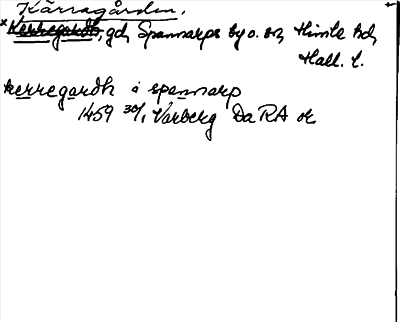 Kärragården.
*Kerregardh, gd, Spannarps by o. sn, Himle hd,
Hall. l.
kerregardh i spannarp
1459 30/1 Varberg Da RA or